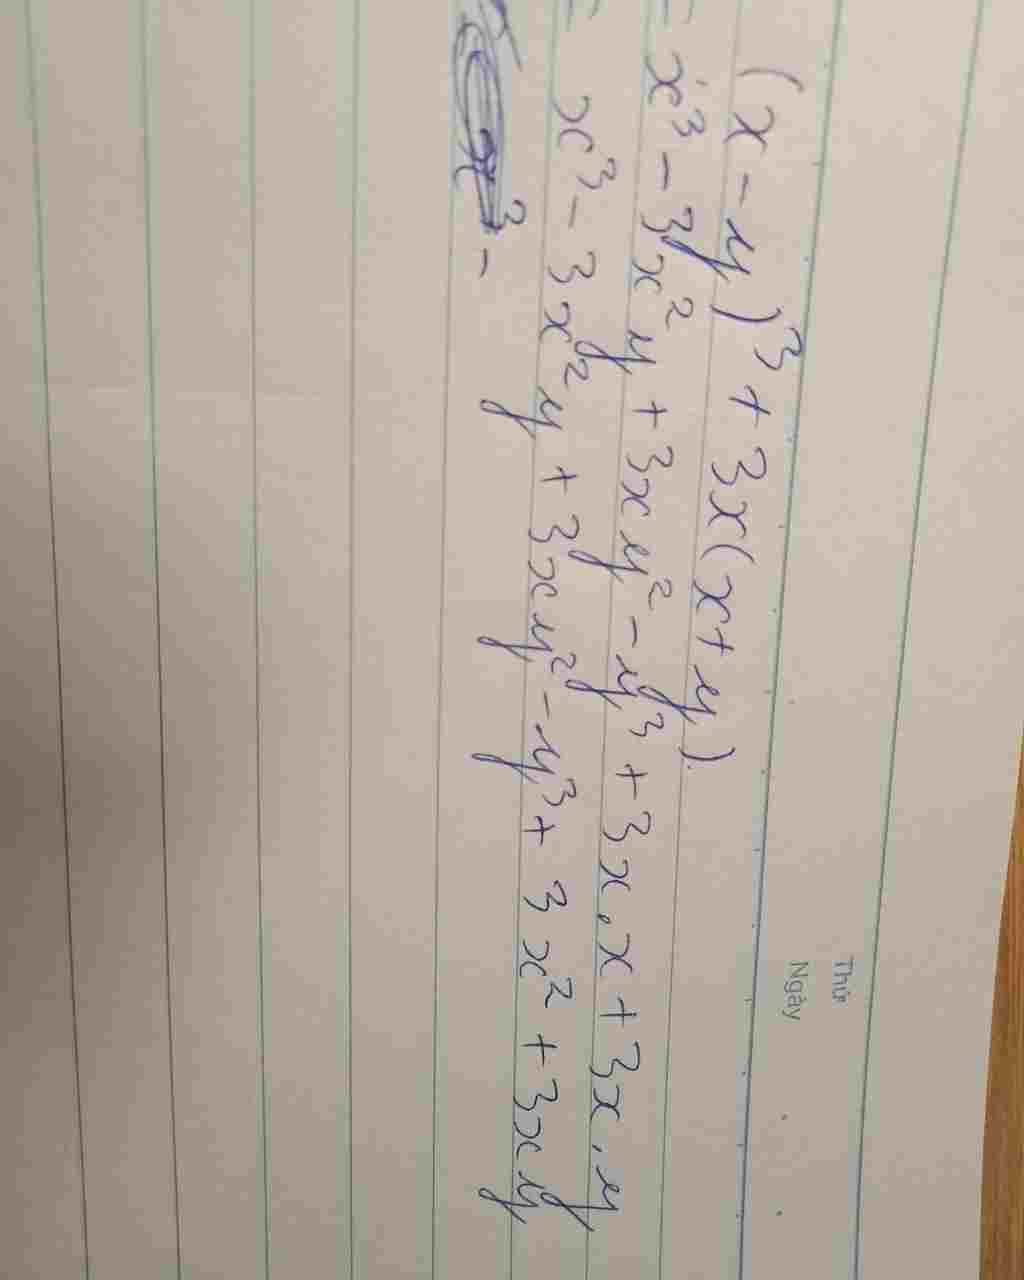 Thứ
Ngày
(x - y)³ + 3x(x + y).
= x³ - 3x²y + 3xy² - y³ + 3x.x + 3x.y
= x³ - 3x²y + 3xy² - y³ + 3x² + 3xy
³ -